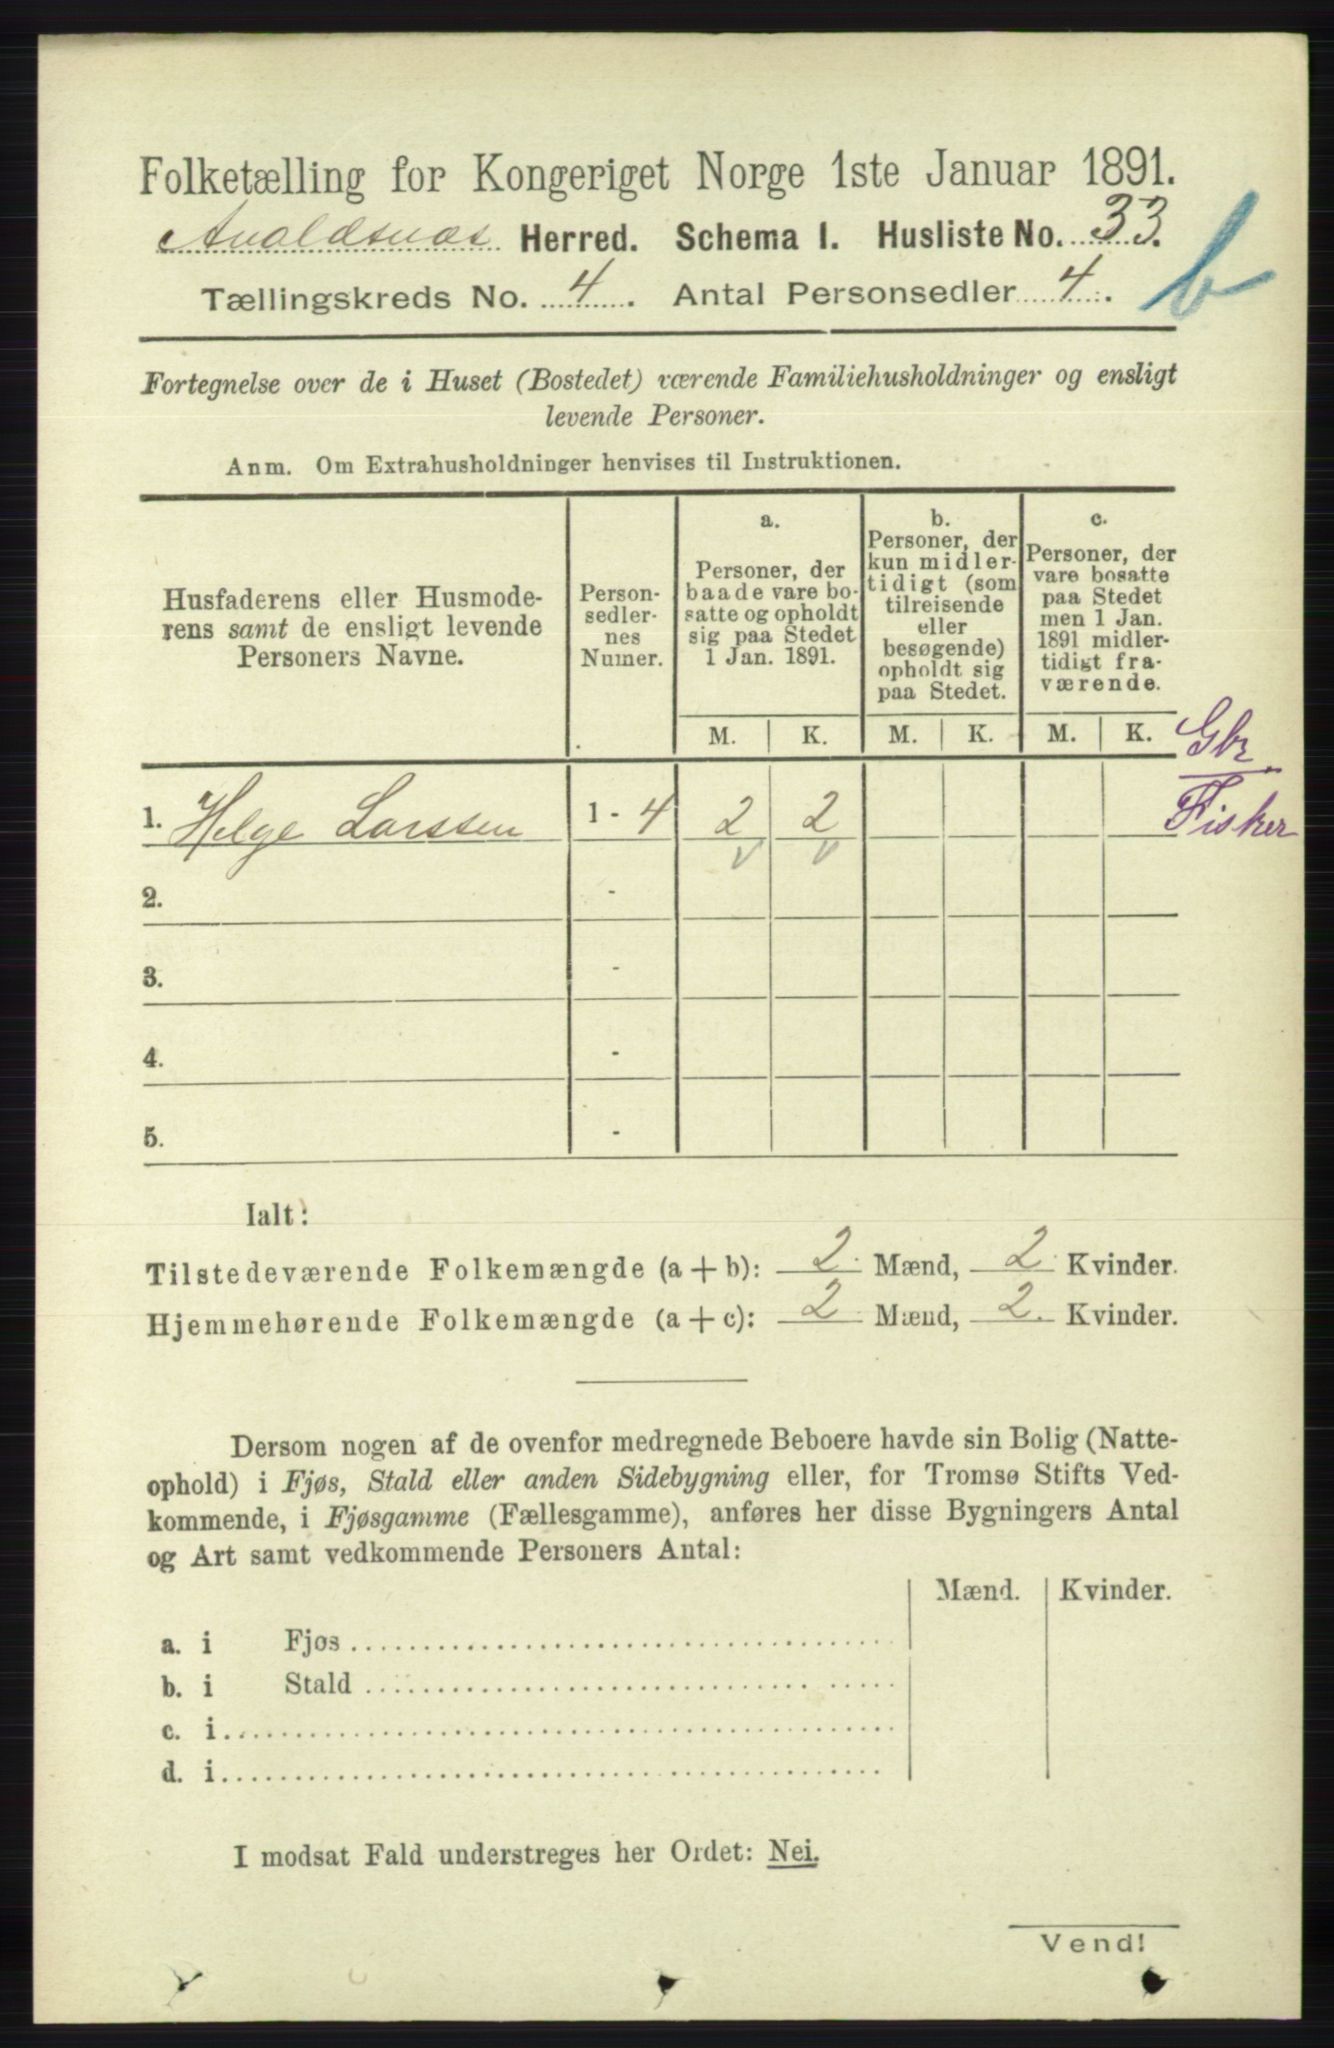 Folketælling for Kongeriget Norge 1ste Januar 1891.
Avaldsnæs Herred. Schema I. Husliste No. 33.
Tællingskreds No. 4. Antal Personsedler 4.
b
Fortegnelse over de i Huset (Bostedet) værende Familiehusholdninger og ensligt
levende Personer.
Anm. Om Extrahusholdninger henvises til Instruktionen.
Husfaderens eller Husmode-
rens samt de ensligt levende
Personers Navne.
Person-
sedler-
nes
Numer.
a.
Personer, der
baade vare bo-
satte og opholdt
sig paa Stedet
1 Jan. 1891.
b.
Personer, der
kun midler-
tidigt (som
tilreisende
eller
besøgende)
opholdt sig
paa Stedet.
c.
Personer, der
vare bosatte
paa Stedet
men 1 Jan.
1891 midler-
tidigt fra-
værende.
M. K. M. K. M. K.
Gbr
Fisker
1. Helge Larssen 1 - 4 2 2
2. -
3. -
4. -
5. -
Ialt:
Tilstedeværende Folkemængde (a + b): 2 Mænd, 2 Kvinder.
Hjemmehørende Folkemængde (a + c): 2 Mænd, 2 Kvinder.
Dersom nogen af de ovenfor medregnede Beboere havde sin Bolig (Natte-
ophold) i Fjøs, Stald eller anden Sidebygning eller, for Tromsø Stifts Ved-
kommende, i Fjøsgamme (Fællesgamme), anføres her disse Bygningers Antal
og Art samt vedkommende Personers Antal:
Mænd. Kvinder.
a. i Fjøs
b. i Stald
c. i
d. i
I modsat Fald understreges her Ordet: Nei.
Vend!